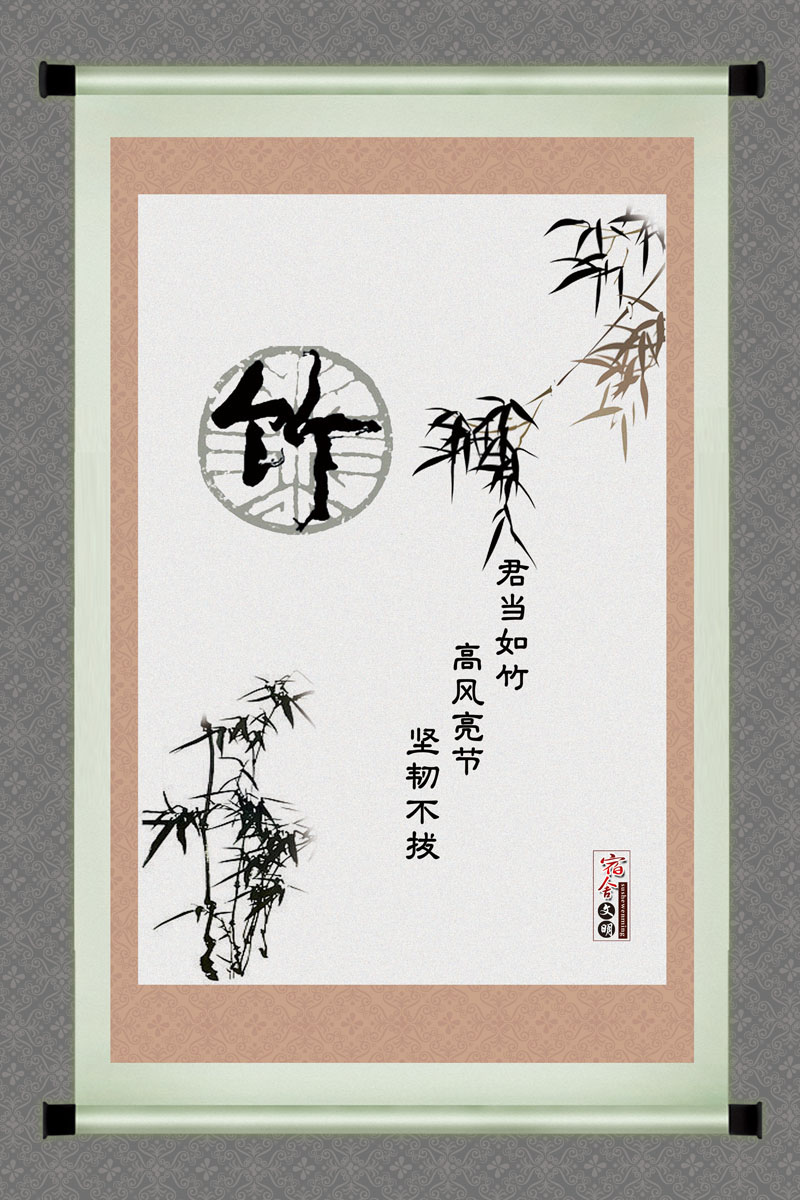 竹
君当如竹
高风亮节
坚韧不拔
宿舍
文明
sushewenming